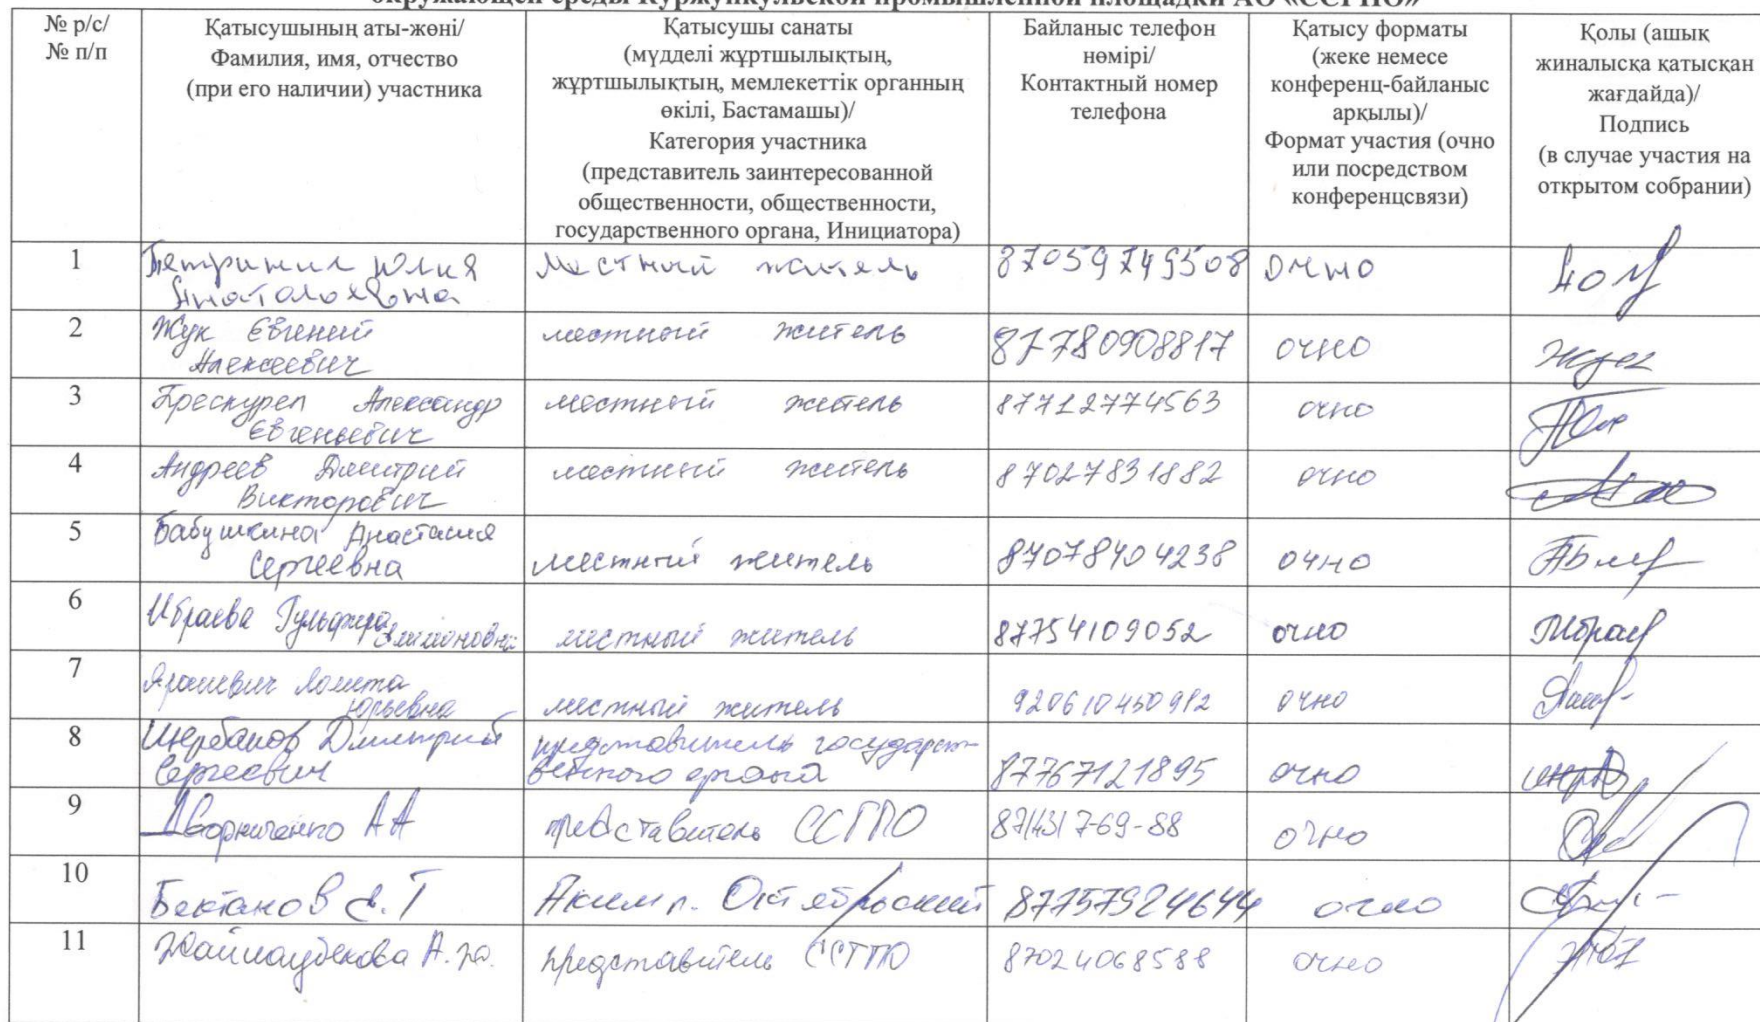 окружающей среды Куржункульской промышленной площадки АО «ССГПО»
№ р/с/
№ п/п
Қатысушының аты-жөні/
Фамилия, имя, отчество
(при его наличии) участника
Қатысушы санаты
(мүдделі жұртшылықтың,
жұртшылықтың, мемлекеттік органның
өкілі, Бастамашы)/
Категория участника
(представитель заинтересованной
общественности, общественности,
государственного органа, Инициатора)
Байланыс телефон
нөмірі/
Контактный номер
телефона
Қатысу форматы
(жеке немесе
конференц-байланыс
арқылы)/
Формат участия (очно
или посредством
конференцсвязи)
Қолы (ашық
жиналысқа қатысқан
жағдайда)/
Подпись
(в случае участия на
открытом собрании)
1
Юлия
Анатольевна
местный житель
87059749508
очно
2
Жук Евгений
Алексеевич
местный житель
87780908817
очно
Жук
3
Александр
Евгеньевич
местный житель
87712774563
очно
4
Андреев Дмитрий
Викторович
местный житель
87027831882
очно
5
Бабушкина Анастасия
Сергеевна
местный житель
87078404238
очно
6
Ибраева Гульфира
местный житель
87754109052
очно
7
Лолита
Юрьевна
местный житель
920610450912
очно
8
Щербаков Дмитрий
Сергеевич
представитель государст-
венного органа
87767121895
очно
9
Дворниченко АА
представитель ССГПО
8714317-69-88
очно
10
Бектанов Т
Аким п. Октябрьский
87757924644
очно
11
Жайлаубекова А.
представитель ССГПО
87024068588
очно